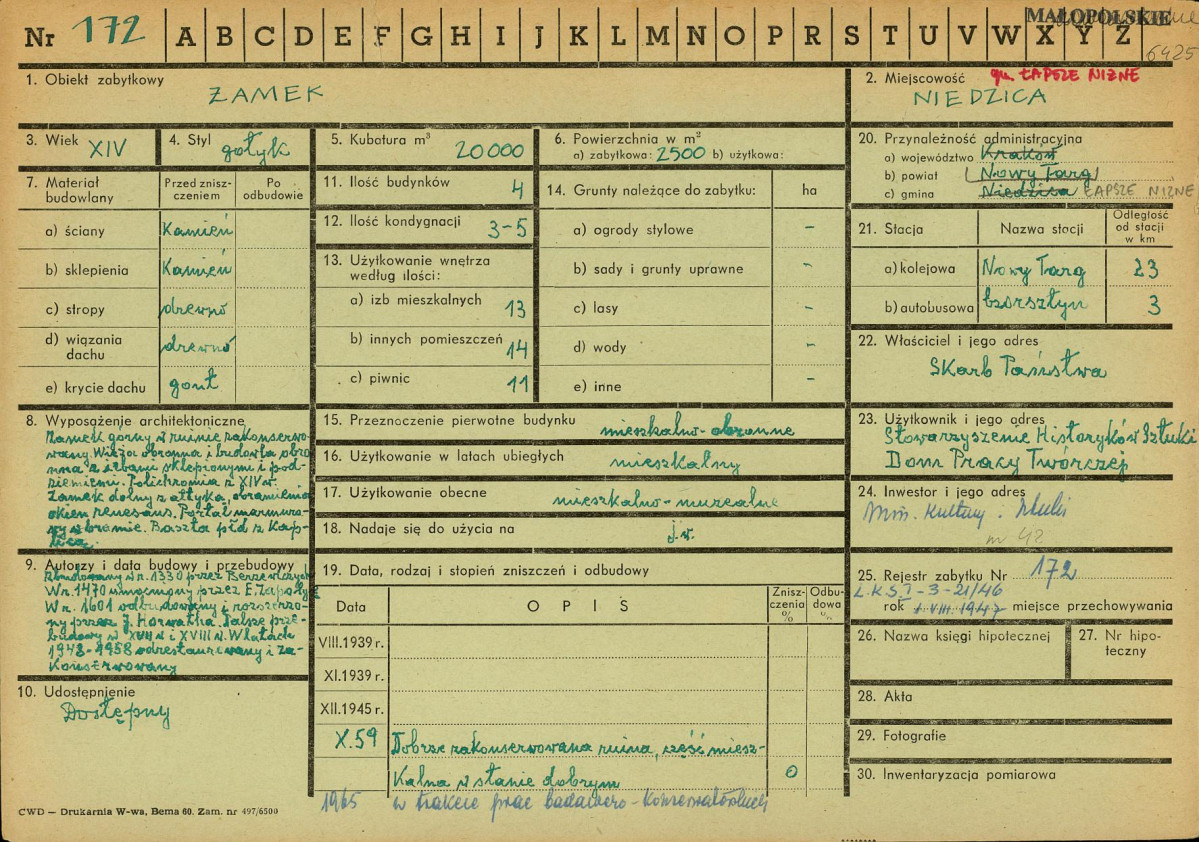 Nr 172 A B C D E F G H I J K L M N O P R S T U V W X Y Z
MAŁOPOLSKIE
6425
1. Obiekt zabytkowy
ZAMEK
2. Miejscowość gm. ŁAPSZE NIŻNE
NIEDZICA
3. Wiek XIV
4. Styl gotyk
5. Kubatura m³ 20000
6. Powierzchnia w m²
a) zabytkowa: 2500 b) użytkowa:
7. Materiał budowlany
Przed zniszczeniem
Po odbudowie
a) ściany Kamień
b) sklepienia Kamień
c) stropy drewno
d) wiązania dachu drewno
e) krycie dachu gont
8. Wyposażenie architektoniczne
Zamek górny w ruinie zakonserwo-
wany. Wieża obronna i budowla obro
nna z izbami sklepionymi i pod-
ziemiemi. Polichromia z XIV w.
Zamek dolny z attyką, obramienia
okien renesans. Portal marmuro-
wy w bramie. Baszta płd z Kap-
licą.
9. Autorzy i data budowy i przebudowy
Zbudowany w r. 1330 przez Berzewiczych
W r. 1470 umocniony przez E. Zapolyę
W r. 1601 odbudowany i rozszerzo-
ny przez J. Horwatha. Dalsze prze-
budowy w XVII w i XVIII w. W latach
1948-1958 odrestaurowany i za-
Konserwowany
10. Udostępnienie
Dostępny
11. Ilość budynków 4
12. Ilość kondygnacji 3-5
13. Użytkowanie wnętrza według ilości:
a) izb mieszkalnych 13
b) innych pomieszczeń 14
c) piwnic 11
14. Grunty należące do zabytku: ha
a) ogrody stylowe -
b) sady i grunty uprawne -
c) lasy -
d) wody -
e) inne -
15. Przeznoczenie pierwotne budynku mieszkalno-obronne
16. Użytkowanie w latach ubiegłych mieszkalny
17. Użytkowanie obecne mieszkalno-muzealne
18. Nadaje się do użycia na j.w.
19. Data, rodzaj i stopień zniszczeń i odbudowy
Data OPIS Zniszczenia % Odbudowa %
VIII.1939 r.
XI.1939 r.
XII.1945 r.
X.59 Dobrze zakonserwowana ruina, część miesz-
Kalna w stanie dobrym 0
1965 w trakcie prac badawczo-Konserwatorskich
20. Przynależność administracyjna
a) województwo Kraków
b) powiat (Nowy Targ)
c) gmina Niedzica ŁAPSZE NIŻNE
21. Stacja Nazwa stacji Odległość od stacji w km
a) kolejowa Nowy Targ 23
b) autobusowa Czorsztyn 3
22. Właściciel i jego adres
Skarb Państwa
23. Użytkownik i jego adres
Stowarzyszenie Historyków Sztuki
Dom Pracy Twórczej
24. Inwestor i jego adres
Min. Kultury i Sztuki
25. Rejestr zabytku Nr 172
L.K.S. I-3-21/46
rok 1.VIII.1947 miejsce przechowywania
26. Nazwa księgi hipotecznej
27. Nr hipoteczny
28. Akta
29. Fotografie
30. Inwentaryzacja pomiarowa
CWD — Drukarnia W-wa, Bema 60. Zam. nr 497/6500